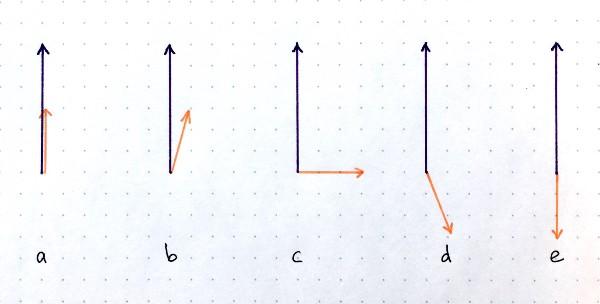 a b c d e